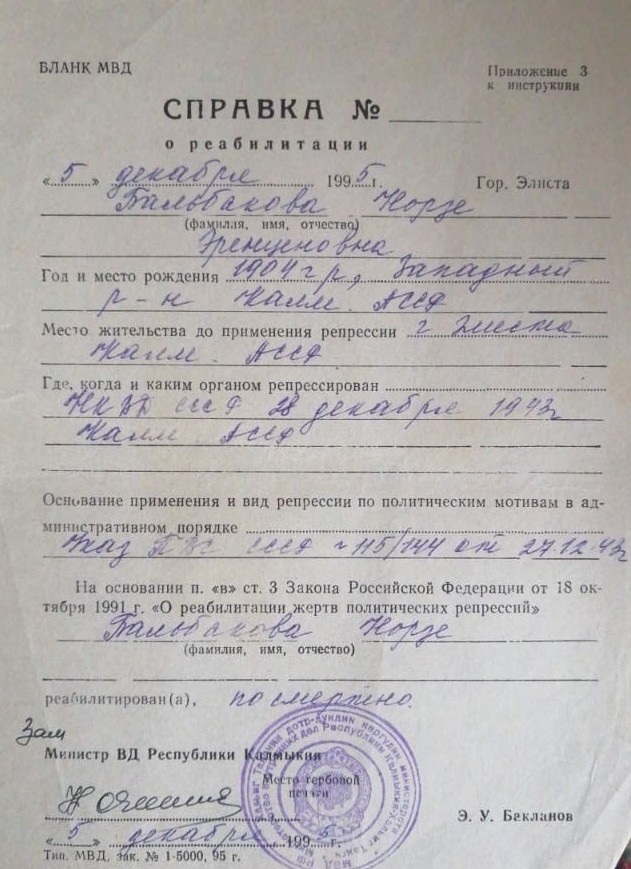 БЛАНК МВД
Приложение 3
к инструкции
СПРАВКА №
о реабилитации
«5» декабря 1995 г. Гор. Элиста
Бальбакова Норзе
(фамилия, имя, отчество)
Эренценовна
Год и место рождения 1904 г р, Западный
р-н Калм. АССР
Место жительства до применения репрессии г Элиста
Калм. АССР
Где, когда и каким органом репрессирован
НКВД СССР 28 декабря 1943г
Калм АССР
Основание применения и вид репрессии по политическим мотивам в ад-
министративном порядке
Указ ПВС СССР 115/144 от 27.12.43г
На основании п. «в» ст. 3 Закона Российской Федерации от 18 ок-
тября 1991 г. «О реабилитации жертв политических репрессий»
Бальбакова Норзе
(фамилия, имя, отчество)
реабилитирован(а), посмертно.
Зам
Министр ВД Республики Калмыкия
Место гербовой
печати
Э. У. Бакланов
«5» декабря 1995 г.
Тип. МВД, зак. № 1-5000, 95 г.